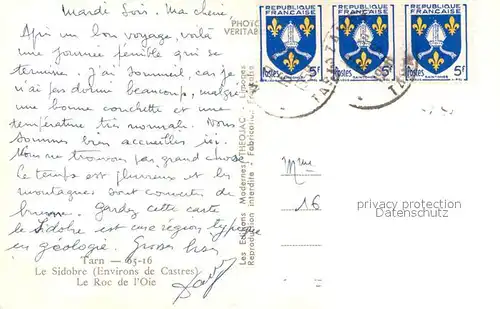 Mardi Soir. Ma cherie
Apri un bon voyage, voilà
une journée penible qui se
termine. J'ai sommeil, car je
n'ai pas dormi beaucoup, malgré
une bonne couchette et une
température très normale. Nous
sommes bien accueillies ici.
Nous ne trouvons pas grand chose
Le temps est pluvieux et les
montagnes sont couvertes de
brume. Gardez cette carte
le Sidobre est une région typique
en géologie. Grosses bises
Tarn — 65-16
Le Sidobre (Environs de Castres)
Le Roc de l'Oie
PHOTO
VERITABLE
Les Editions Modernes "THEOJAC" - Limoges
Reproduction interdite - Fabrication Française
REPUBLIQUE
FRANÇAISE
SAINTONGE
Postes 5f
REPUBLIQUE
FRANÇAISE
SAINTONGE
Postes 5f
REPUBLIQUE
FRANÇAISE
SAINTONGE
Postes 5f
TARN
Mme
16
privacy protection
Datenschutz